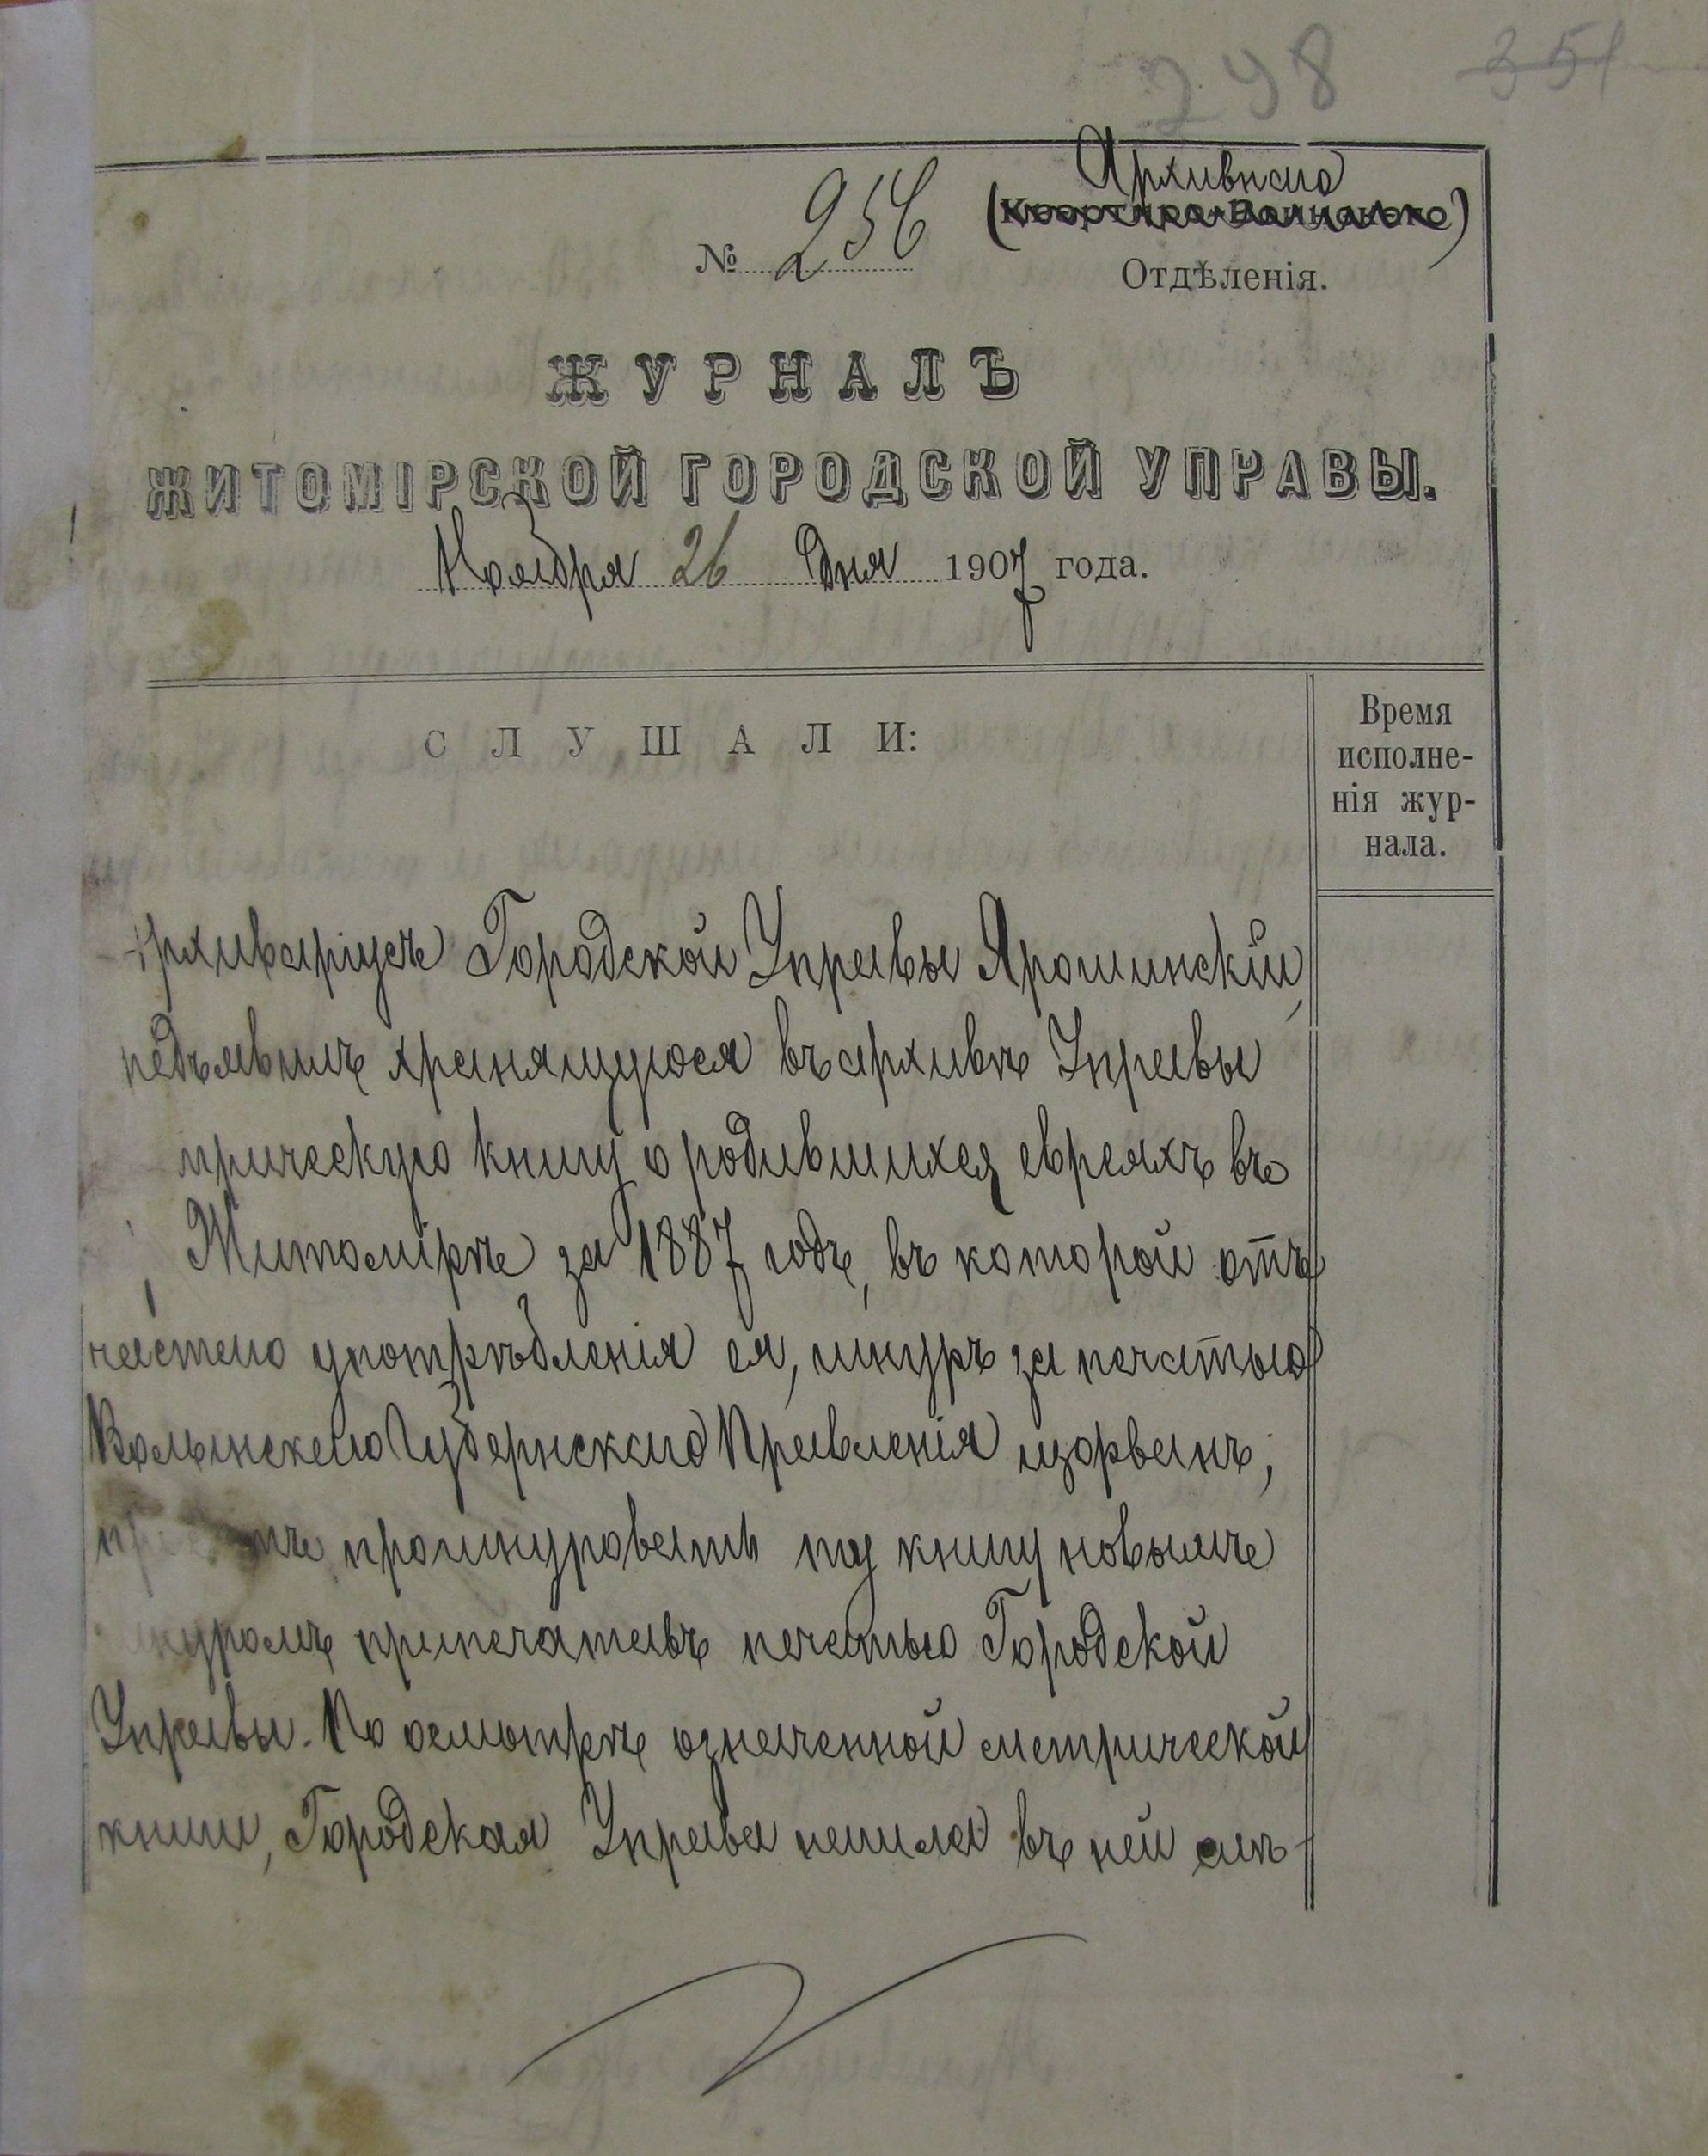 298 351
Архивнаго
№ 256
Отдѣленія.
ЖУРНАЛЪ
ЖИТОМІРСКОЙ ГОРОДСКОЙ УПРАВЫ.
Ноября 26 дня 1907 года.
СЛУШАЛИ:
Время
исполне-
нія жур-
нала.
Архиваріусъ Городской Управы Ярошинскій,
предъявилъ хранящуюся въ архивѣ Управы
трическую книгу о родившихся евреяхъ въ
Житомірѣ за 1887 годъ, въ которой отъ
частаго употрѣбленія ея, шнуръ за печатью
Волынскаго Губернскаго Правленія изорванъ;
прошнуровать ту книгу новымъ
шнуромъ припечатавъ печатью Городской
Управы. По осмотрѣ означенной метрической
книги, Городская Управа нашла въ ней слѣ-